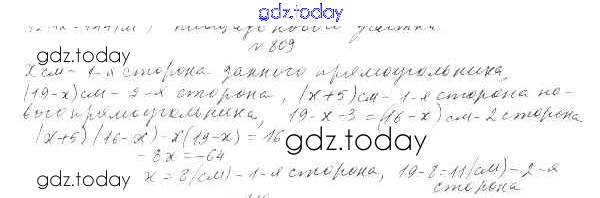 gdz.today
№ 809
x см - 1-я сторона данного прямоугольника,
gdz.today
(19-x) см - 2-я сторона, (x+5) см - 1-я сторона но-
вого прямоугольника, 19-x-3=(16-x) см - 2 сторона
(x+5)(16-x)-x(19-x)=16
gdz.today
-8x=-64
gdz.today
x=8(см)-1-я сторона, 19-8=11(см)-2-я
сторона